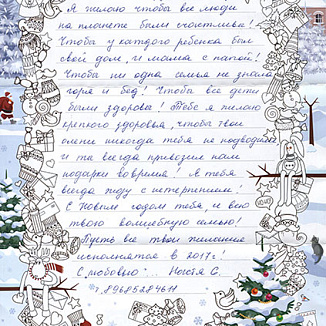 Я желаю чтобы все люди
на планете были счастливы!
Чтобы у каждого ребенка был
свой дом, и мама с папой!
Чтобы ни одна семья не знала
горя и бед! Чтобы все дети
были здоровы! Тебе я желаю
крепкого здоровья, чтобы твои
олени никогда тебя не подводили
и ты всегда привозил нам
подарки вовремя! Я тебя
всегда жду с нетерпением!
С Новым годом тебя, и всю
твою волшебную семью!
Пусть все твои желания
исполнятся в 2017г!
С любовью... Настя С.
т.89685284611